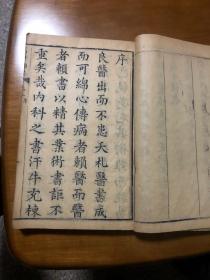 序
良醫出而不患夭札醫書成
而可綿心傳病者賴醫而醫
者賴書以精其業術書詎不
重矣哉内科之書汗牛充棟